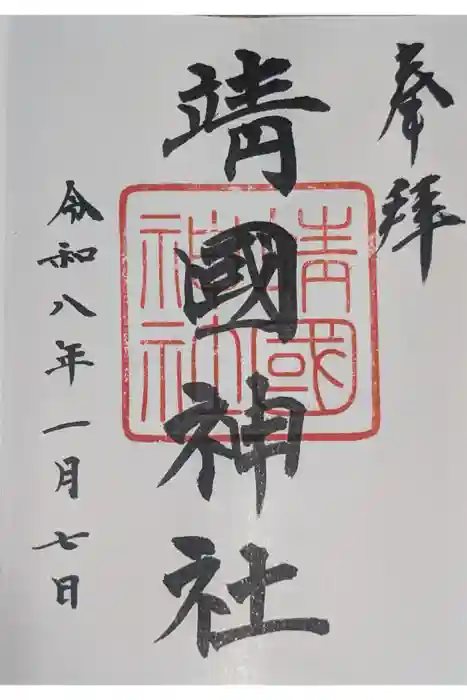 奉拝
靖國神社
靖國神社
令和八年一月七日